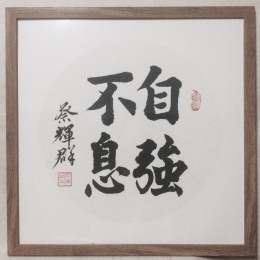 自強
不息
蔡輝群